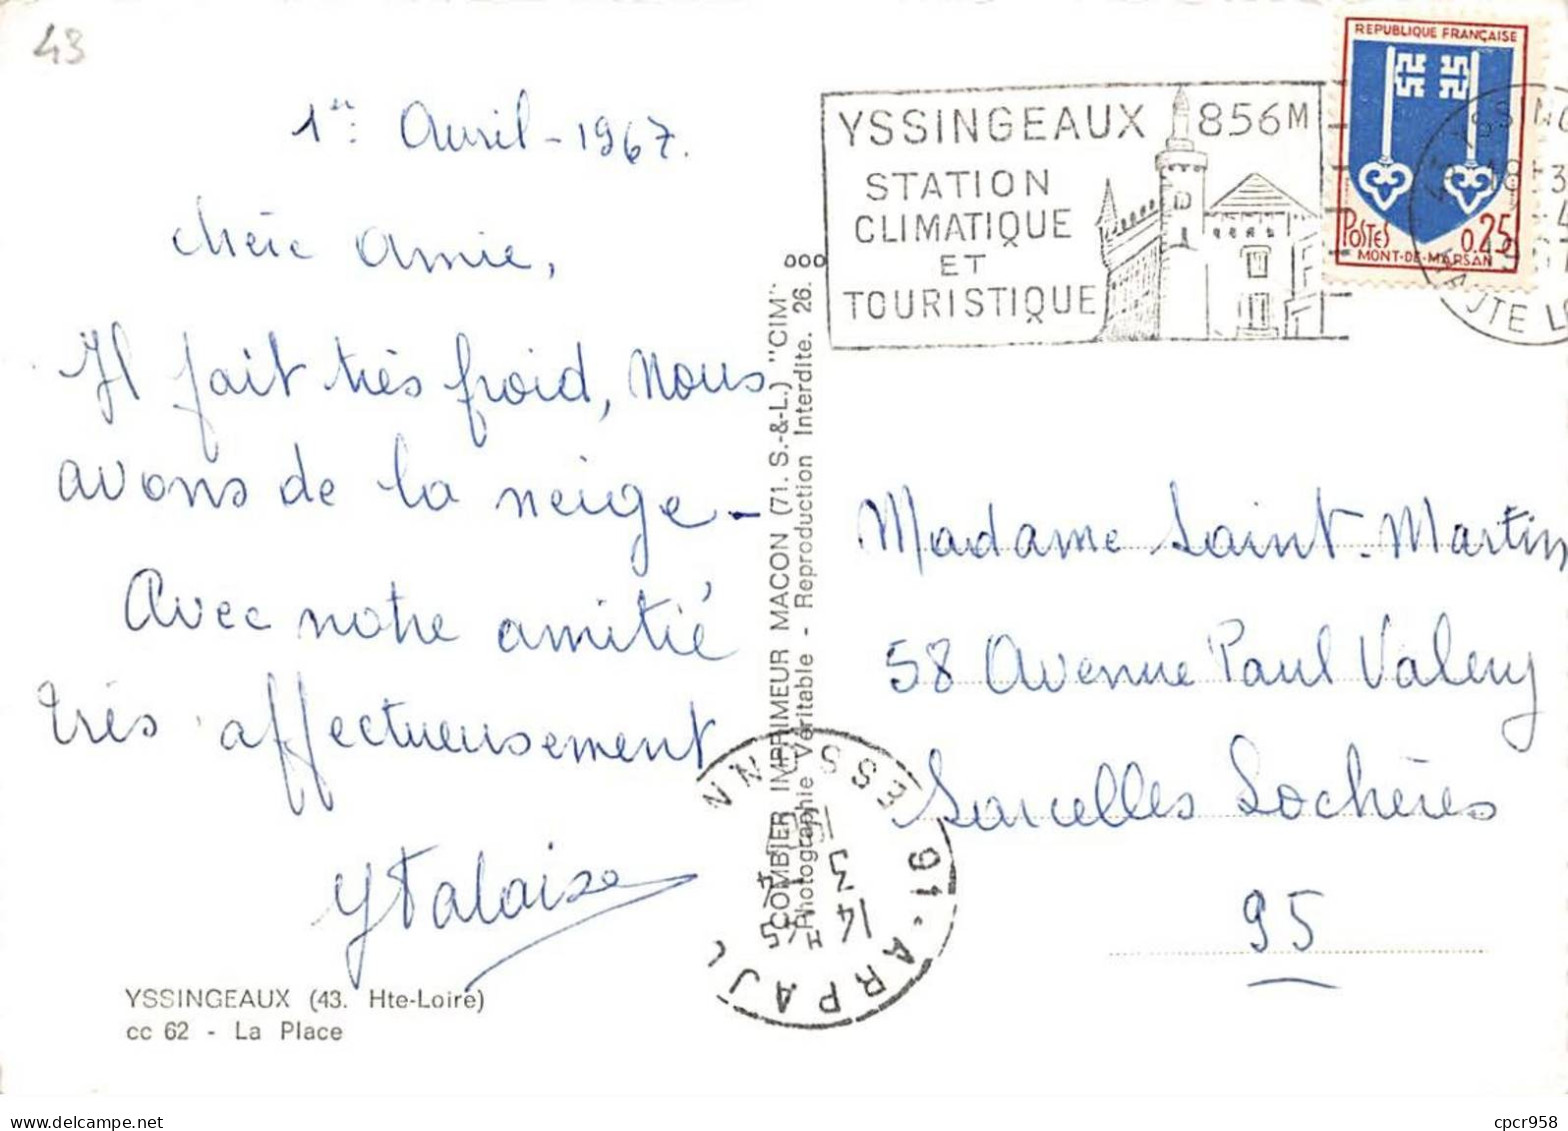 43
1er Avril - 1967.
chère Amie,
Il fait très froid, nous
avons de la neige -
Avec notre amitié
très affectueusement
YSSINGEAUX (43. Hte-Loire)
cc 62 - La Place
COMBIER IMPRIMEUR MACON (71. S.-&-L.) "CIM"
Photographie Véritable - Reproduction Interdite. 26.
YSSINGEAUX 856M
STATION
CLIMATIQUE
ET
TOURISTIQUE
REPUBLIQUE FRANÇAISE
POSTES 0,25
MONT-DE-MARSAN
Madame Saint-Martin
58 Avenue Paul Valery
Sarcelles Lochères
95
91 - ARPAJ
14 H 45
cpcr958